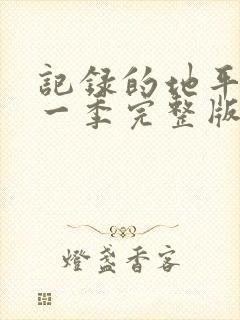 記録的地平
一季完整版
燈盞香客